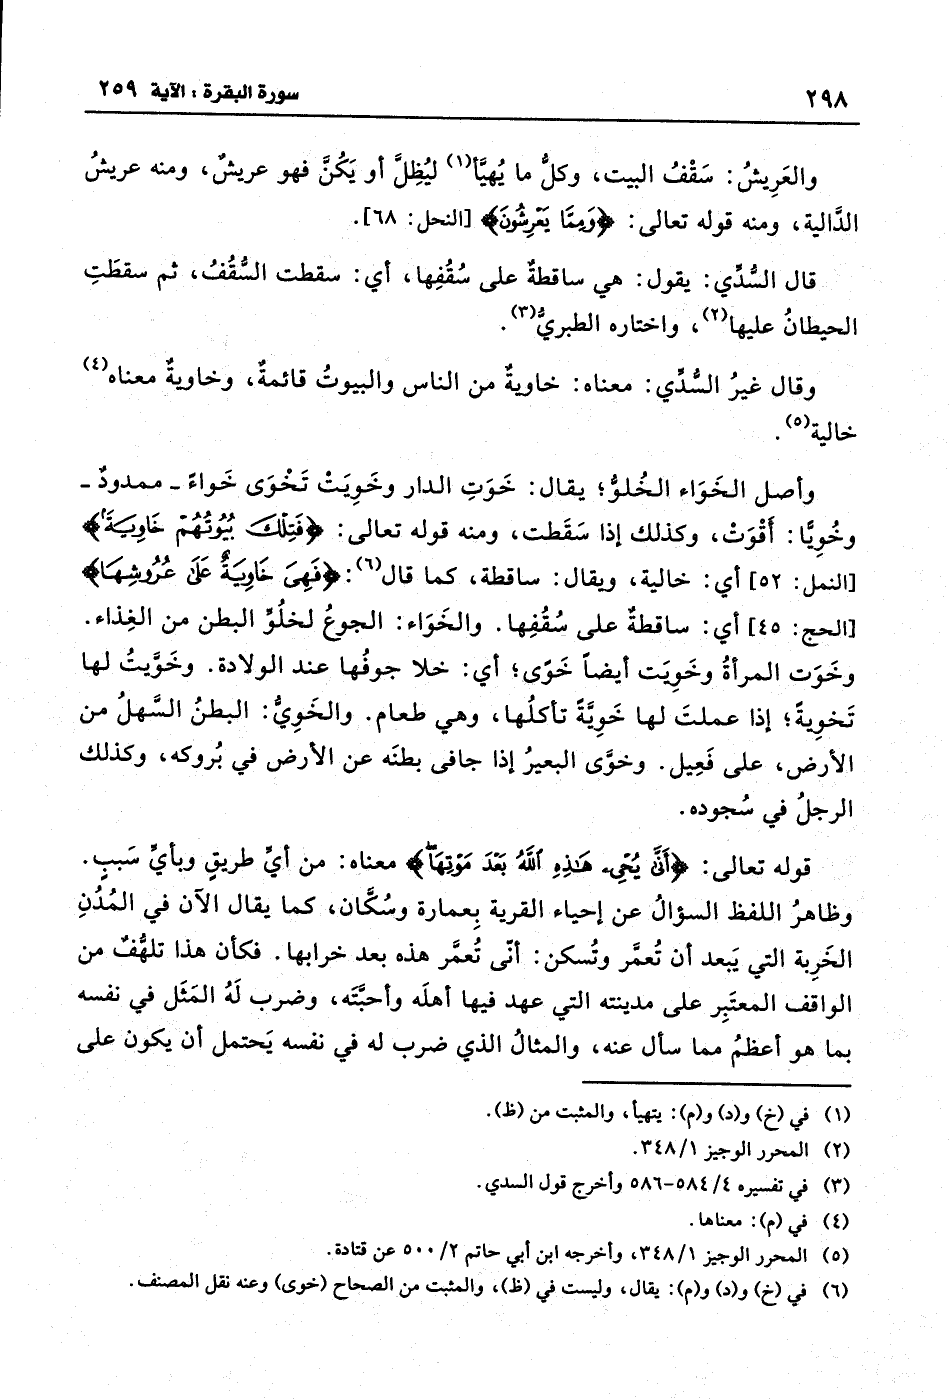 ٢٩٨
سورة البقرة : الآية ٢٥٩
والعَرِيشُ: سَقْفُ البيت، وكلُّ ما يُهيَّأ(١) ليُظِلَّ أو يَكُنَّ فهو عريشٌ، ومنه عريشُ
الدَّالية، ومنه قوله تعالى: ﴿وَمِمَّا يَعْرِشُونَ﴾ [النحل: ٦٨].
قال السُّدِّي: يقول: هي ساقطةٌ على سُقُفِها، أي: سقطت السُّقُفُ، ثم سقطَتِ
الحيطانُ عليها(٢)، واختاره الطبريُّ(٣).
وقال غيرُ السُّدِّي: معناه: خاويةٌ من الناس والبيوتُ قائمةٌ، وخاويةٌ معناه(٤)
خالية(٥).
وأصل الخَوَاء الخُلوُّ؛ يقال: خَوَتِ الدار وخَوِيَتْ تَخْوَى خَواءً ـ ممدودٌ ـ
وخُوِيًّا: أَقْوَتْ، وكذلك إذا سَقَطت، ومنه قوله تعالى: ﴿فَتِلْكَ بُيُوتُهُمْ خَاوِيَةً﴾
[النمل: ٥٢] أي: خالية، ويقال: ساقطة، كما قال(٦): ﴿فَهِيَ خَاوِيَةٌ عَلَىٰ عُرُوشِهَا﴾
[الحج: ٤٥] أي: ساقطةٌ على سُقُفِها. والخَوَاء: الجوعُ لخلُوِّ البطن من الغِذاء.
وخَوَت المرأةُ وخَوِيَت أيضاً خَوًى؛ أي: خلا جوفُها عند الولادة. وخَوَّيتُ لها
تَخويةً؛ إذا عملتَ لها خَوِيَّةً تأكلُها، وهي طعام. والخَوِيُّ: البطنُ السَّهلُ من
الأرض، على فَعِيل. وخوَّى البعيرُ إذا جافى بطنَه عن الأرض في بُروكه، وكذلك
الرجلُ في سُجوده.
قوله تعالى: ﴿أَنَّىٰ يُحْيِۦ هَٰذِهِ ٱللَّهُ بَعْدَ مَوْتِهَا ۖ﴾ معناه: من أيِّ طريقٍ وبأيِّ سَببٍ.
وظاهرُ اللفظ السؤالُ عن إحياء القرية بِعمارة وسُكَّان، كما يقال الآن في المُدُنِ
الخَرِبة التي يَبعد أن تُعمَّر وتُسكن: أنّى تُعمَّر هذه بعد خرابها. فكأن هذا تلهُّفٌ من
الواقف المعتَبِر على مدينته التي عهد فيها أهلَه وأحبَّتَه، وضرب لَهُ المَثَل في نفسه
بما هو أعظمُ مما سأل عنه، والمثالُ الذي ضرب له في نفسه يَحتمل أن يكون على
(١) في (خ) و(د) و(م): يتهيأ، والمثبت من (ظ).
(٢) المحرر الوجيز ٣٤٨/١.
(٣) في تفسيره ٤/ ٥٨٤-٥٨٦ وأخرج قول السدي.
(٤) في (م): معناها.
(٥) المحرر الوجيز ٣٤٨/١، وأخرجه ابن أبي حاتم ٢/ ٥٠٠ عن قتادة.
(٦) في (خ) و(د) و(م): يقال، وليست في (ظ)، والمثبت من الصحاح (خوى) وعنه نقل المصنف.